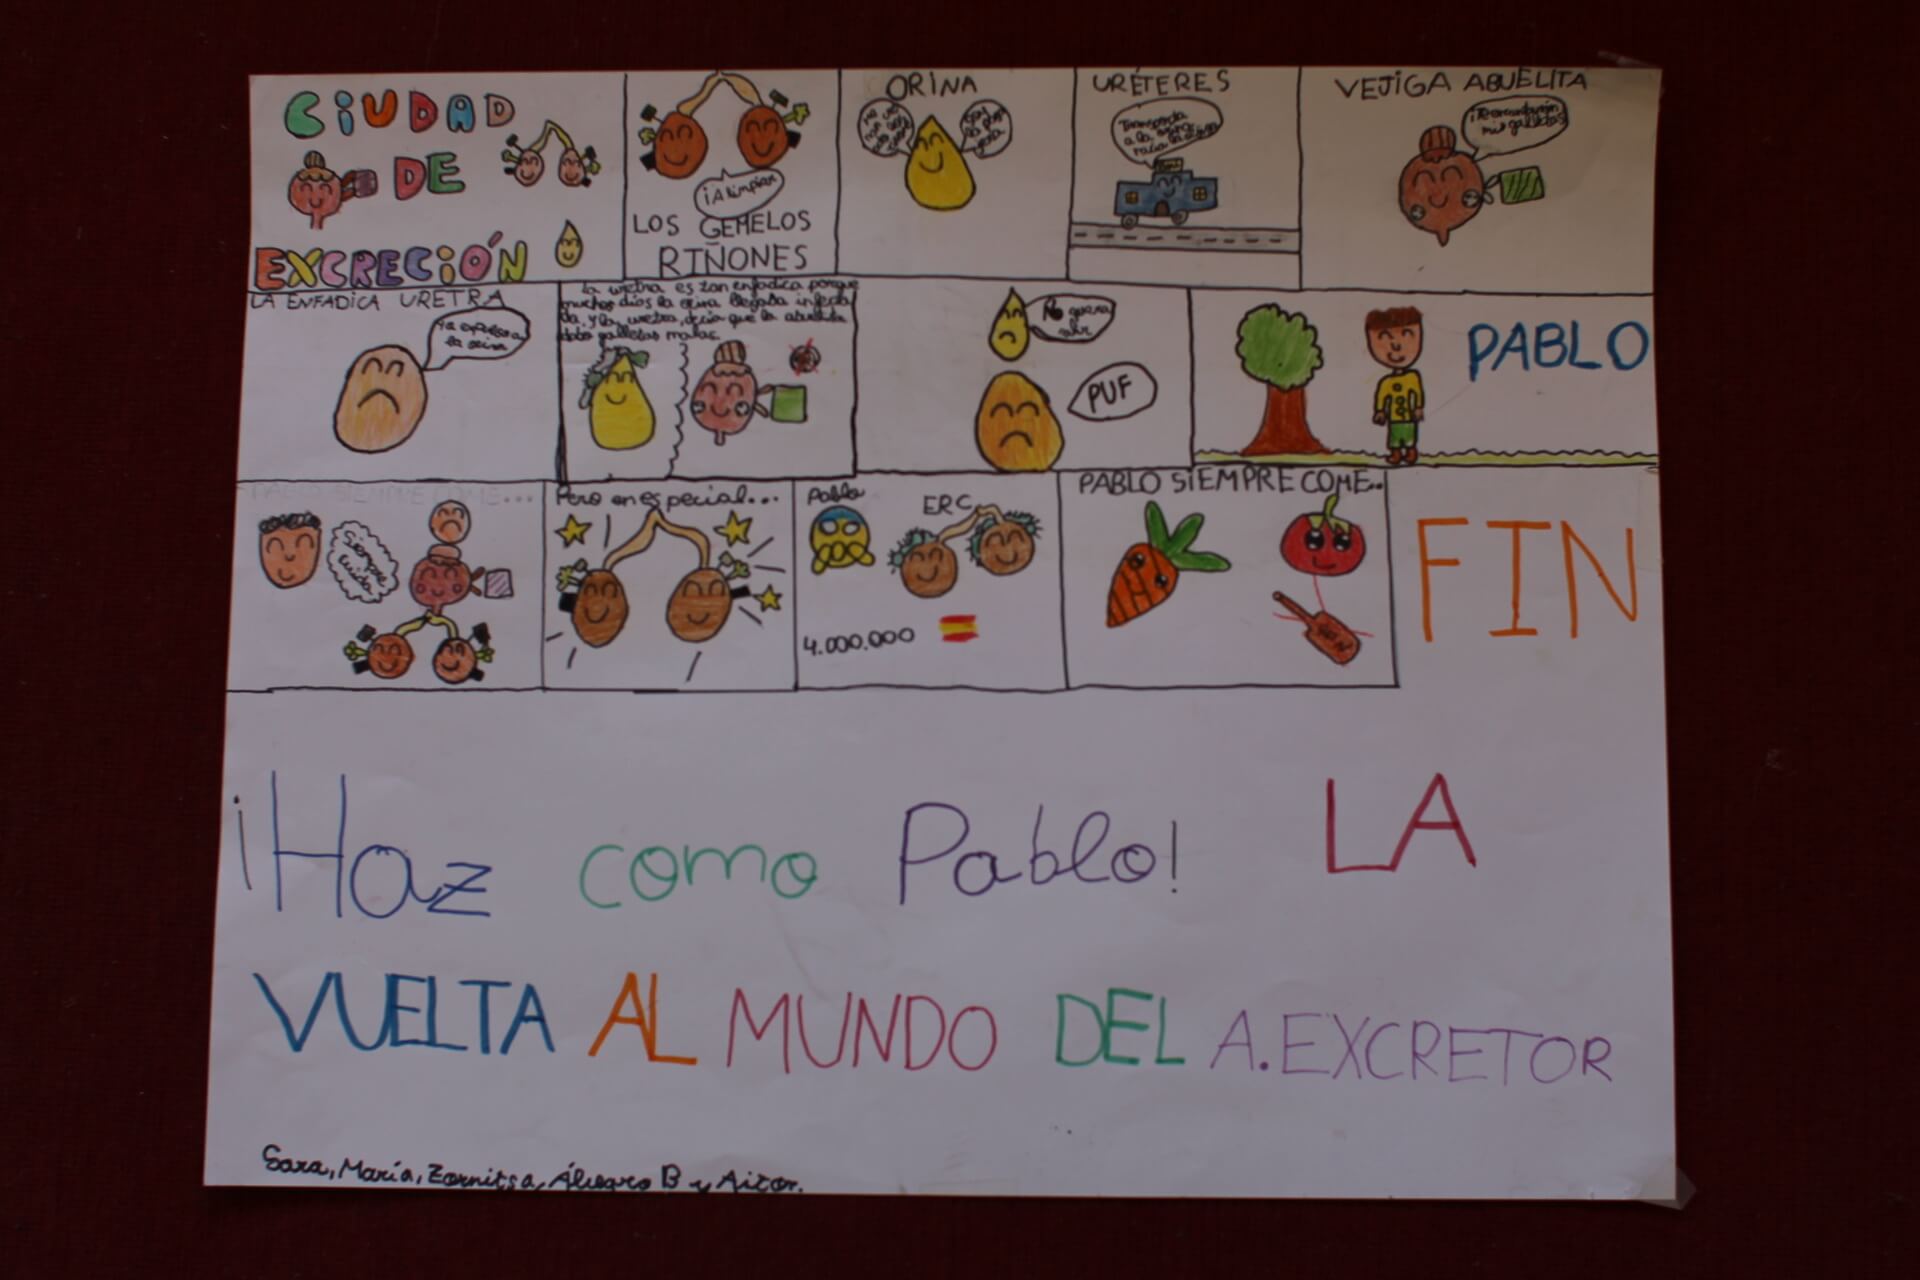 CIUDAD
DE
EXCRECIÓN
¡A limpiar
LOS GEMELOS
RIÑONES
ORINA
URÉTERES
Transporta
a la
VEJIGA ABUELITA
mis galletas
LA ENFADICA URETRA
la orina
La uretra es tan enfadica porque
muchos días la orina llegaba infecta
da, y la uretra, decía que la abuelita
galletas malas.
No quería
salir
PUF
PABLO
PABLO SIEMPRE COME...
Siempre
cuida
Pero en especial...
Pablo
ERC
4.000.000
PABLO SIEMPRE COME...
FIN
¡Haz como Pablo! LA
VUELTA AL MUNDO DEL A.EXCRETOR
Sara, María, Zornitsa, Álvaro B y Aitor.